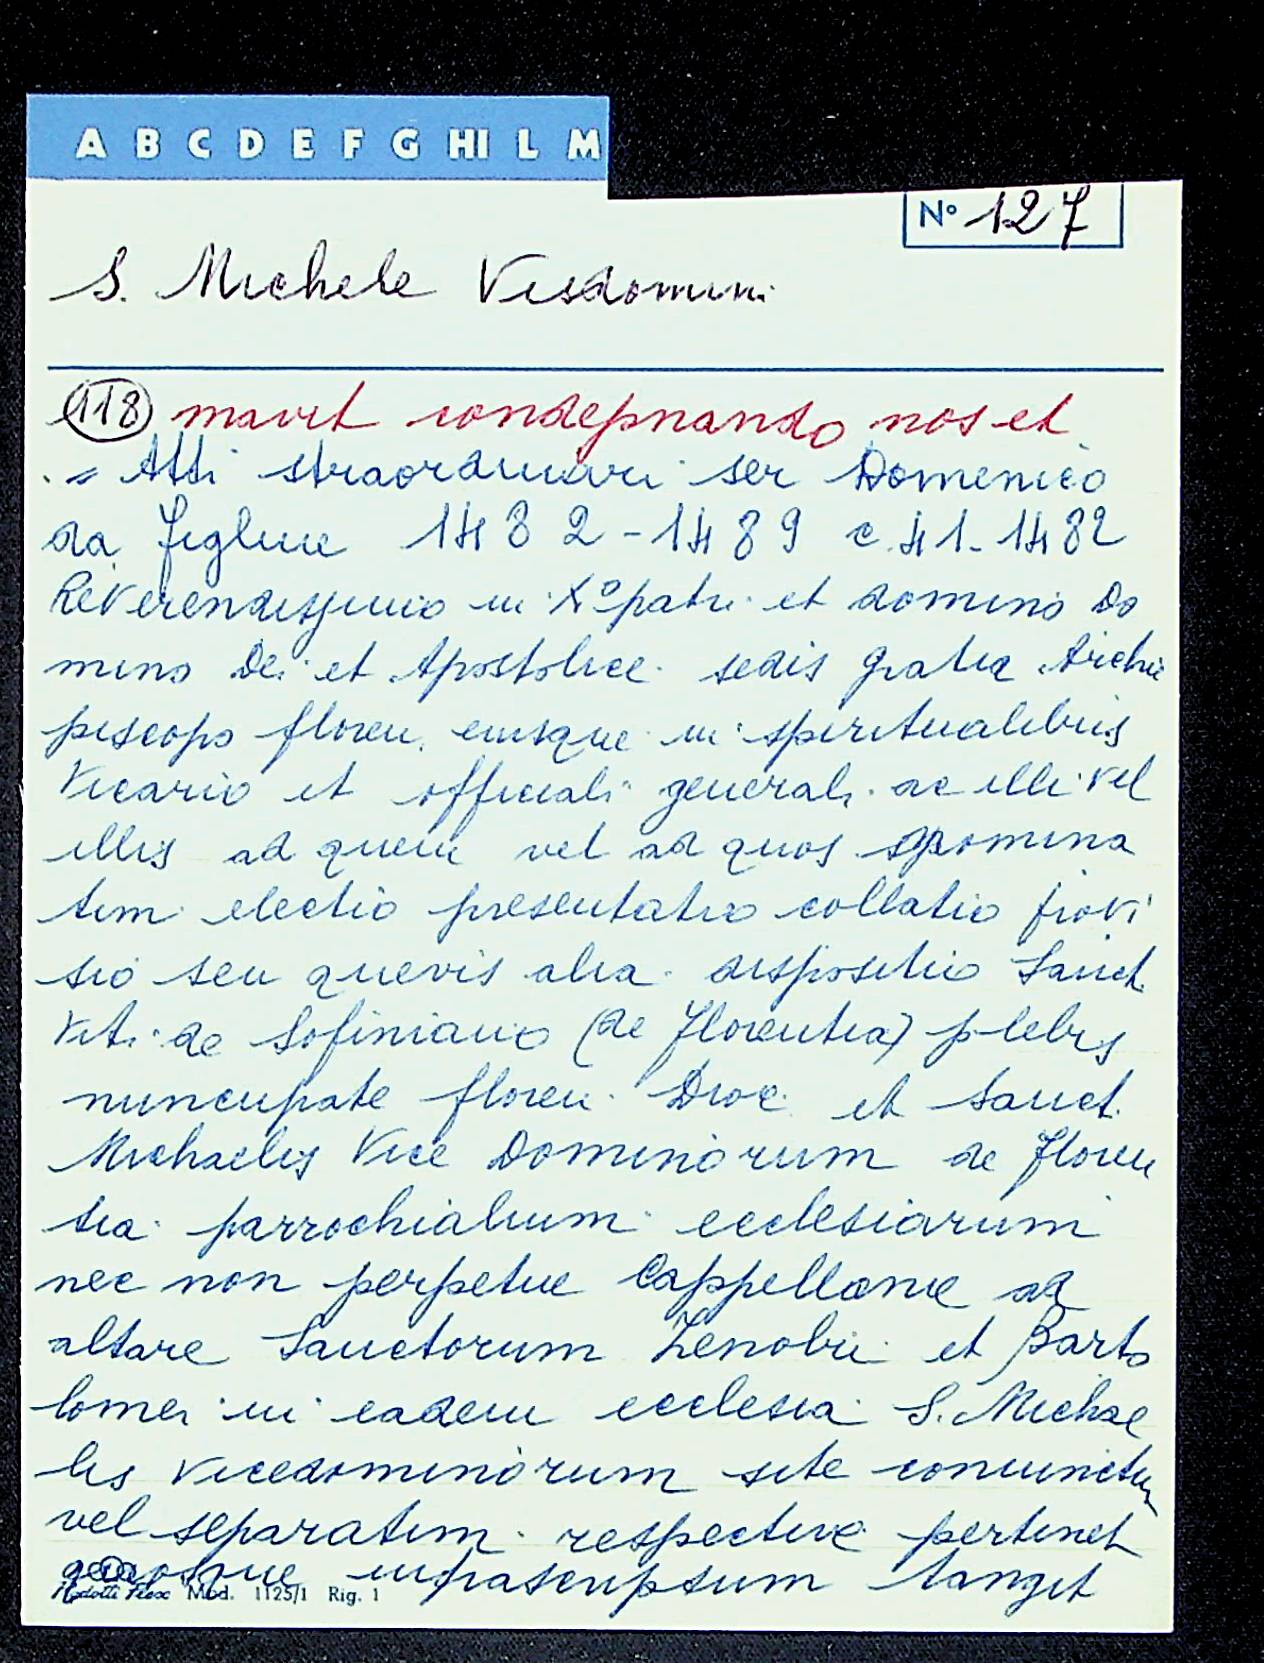 A B C D E F G HI L M
N° 127
S. Michele Visdomini
118 mavit condepnando nos et
. = Atti straordinari ser Domenico
da Figline 1482-1489 c. 41. 1482
Reverendissimo in X° patri et domino Do
mino Dei et Apostolice sedis gratia Archie
piscopo floren. eiusque in spiritualibus
Vicario et officiali generali ac illi vel
illis ad quem vel ad quos
tim electio presentatio collatio provi
sio seu quevis alia dispositio Sanct
Viti de Sofiniano (de Florentia) plebis
nuncupate floren. Dioc. et Sanct.
Michaelis Vice Dominorum de Floren
tia parrochialium ecclesiarum
nec non perpetue Cappellanie ad
altare Sanctorum Zenobii et Barto
lomei in eadem ecclesia S. Michae
lis Vicedominorum site coniunctim
vel separatim respective pertinet
infrascriptum tangit
Mod. 1125/1 Rig. 1